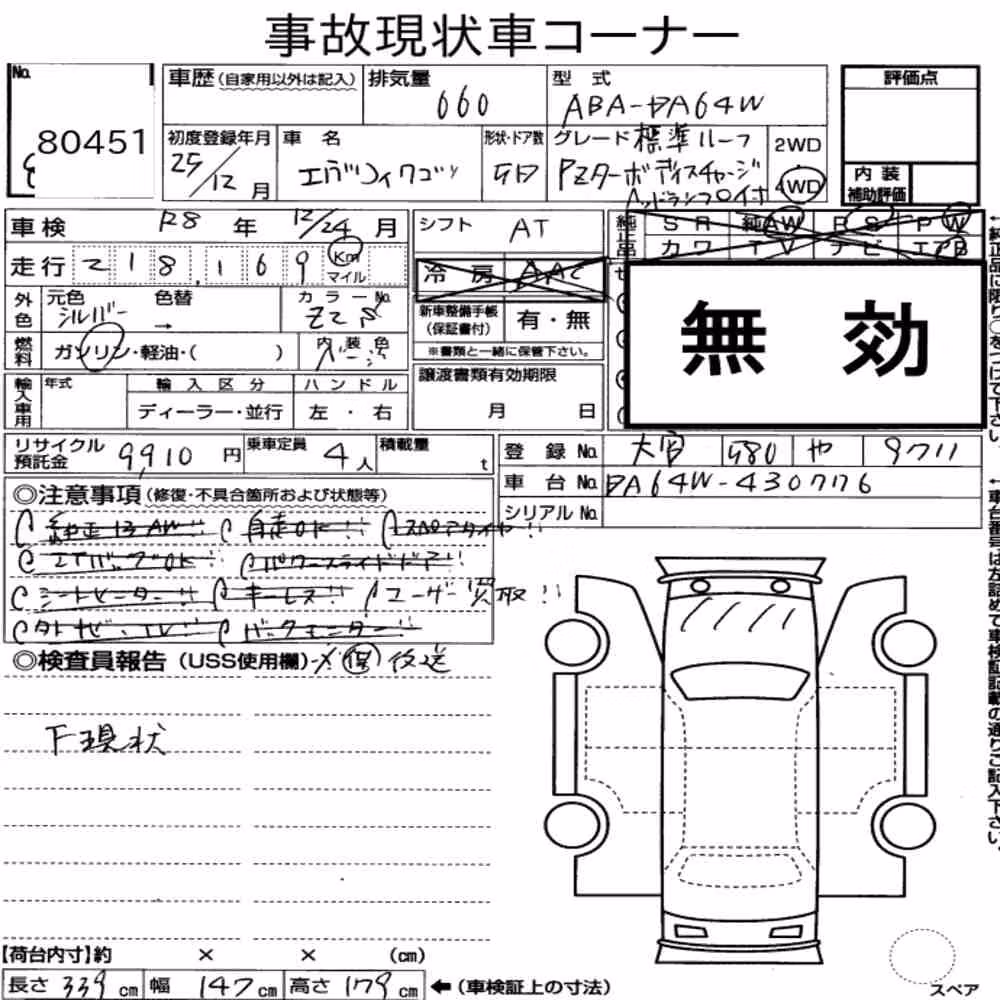 事故現状車コーナー
No. 80451
車歴(自家用以外は記入) 排気量 660 型式 ABA-DA64W
初度登録年月 25/12月 車名 エブリィワゴン 形状・ドア数 5D グレード 標準ルーフ PZターボ ディスチャージヘッドランプ付 2WD 4WD
評価点
内装補助評価
車検 R8年 12/24月 シフト AT
純正品 SR 純AW PS PW
カワ TV ナビ エアB
走行 218,169 Km マイル
冷房 AAC
外色 元色 シルバー 色替 → カラーNo. Z2S
新車整備手帳(保証書付) 有・無
※書類と一緒に保管下さい。
燃料 ガソリン・軽油・( ) 内装色 ベージュ
無効
輸入車用 年式 輸入区分 ハンドル
ディーラー・並行 左・右
譲渡書類有効期限
月 日
リサイクル預託金 9,910円 乗車定員 4人 積載量 t
登録No. 大宮 580 や 9711
車台No. DA64W-430776
シリアルNo.
◎注意事項(修復・不具合箇所および状態等)
純正13AW!! 自走OK!! スペアタイヤ!!
エアバッグOK!! パワースライドドア!!
シートヒーター!! キーレス!! ユーザー買取!!
外ナビ、TV!! バックモニター!!
◎検査員報告(USS使用欄) 保 後送
下現状
【荷台内寸】約 × × (cm)
長さ 339 cm 幅 147 cm 高さ 179 cm ←(車検証上の寸法)
スペア
←純正品に限り○をつけて下さい。
←車台番号は左詰めで車検証記載の通りご記入下さい。